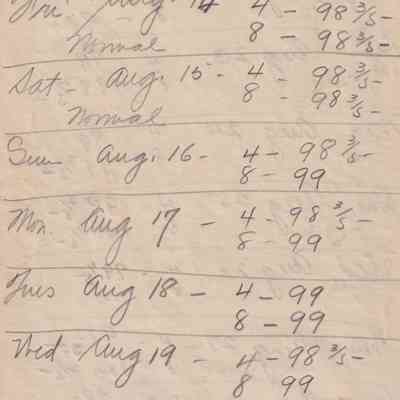 Fri Aug 14 4 - 98 3/5 -
8 - 98 3/5 -
Normal
Sat - Aug. 15 - 4 - 98 3/5 -
8 - 98 3/5 -
Normal
Sun Aug. 16 - 4 - 98 3/5 -
8 - 99
Mon Aug 17 - 4 - 98 3/5 -
8 - 99
Tues Aug 18 - 4 - 99
8 - 99
Wed Aug 19 - 4 - 98 3/5 -
8 99